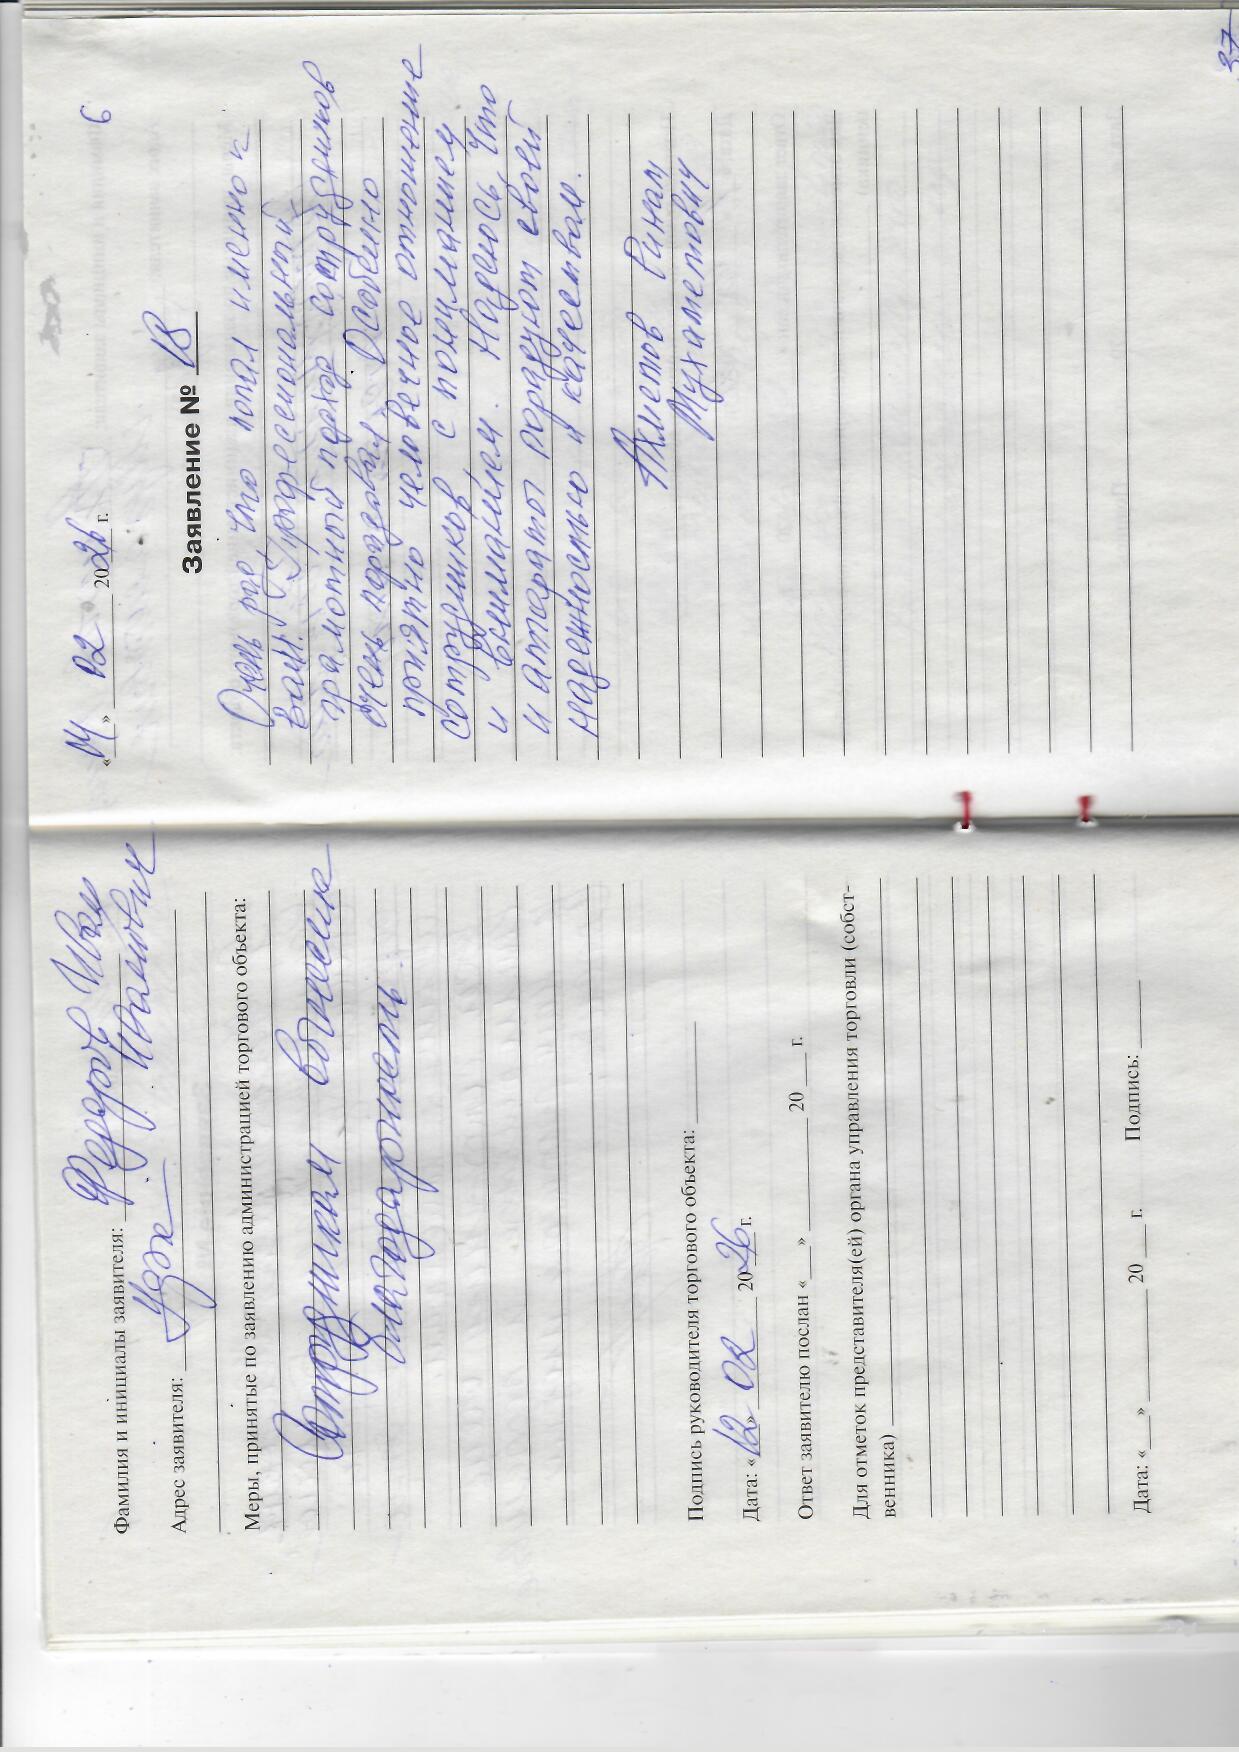 Фамилия и инициалы заявителя: Федоров Иван
Иванович
Адрес заявителя:
Меры, принятые по заявлению администрацией торгового объекта:
Сотрудникам вынесена
благодарность.
Подпись руководителя торгового объекта:
Дата: «12» 02 2026 г.
Ответ заявителю послан «___» ______ 20 ___ г.
Для отметок представителя(ей) органа управления торговли (собст-
венника)
Дата: «___» ______ 20 ___ г. Подпись:
» 02 2026 г.
6
Заявление № 18
Очень рад, что попал именно к
вам. Профессиональный
грамотный подход сотрудников
очень порадовал. Особенно
приятно человечное отношение
сотрудников с пониманием
и вниманием. Надеюсь, что
и аппараты порадуют своей
надежностью и качеством.
Ахметов Ринат
Мухаметович
37